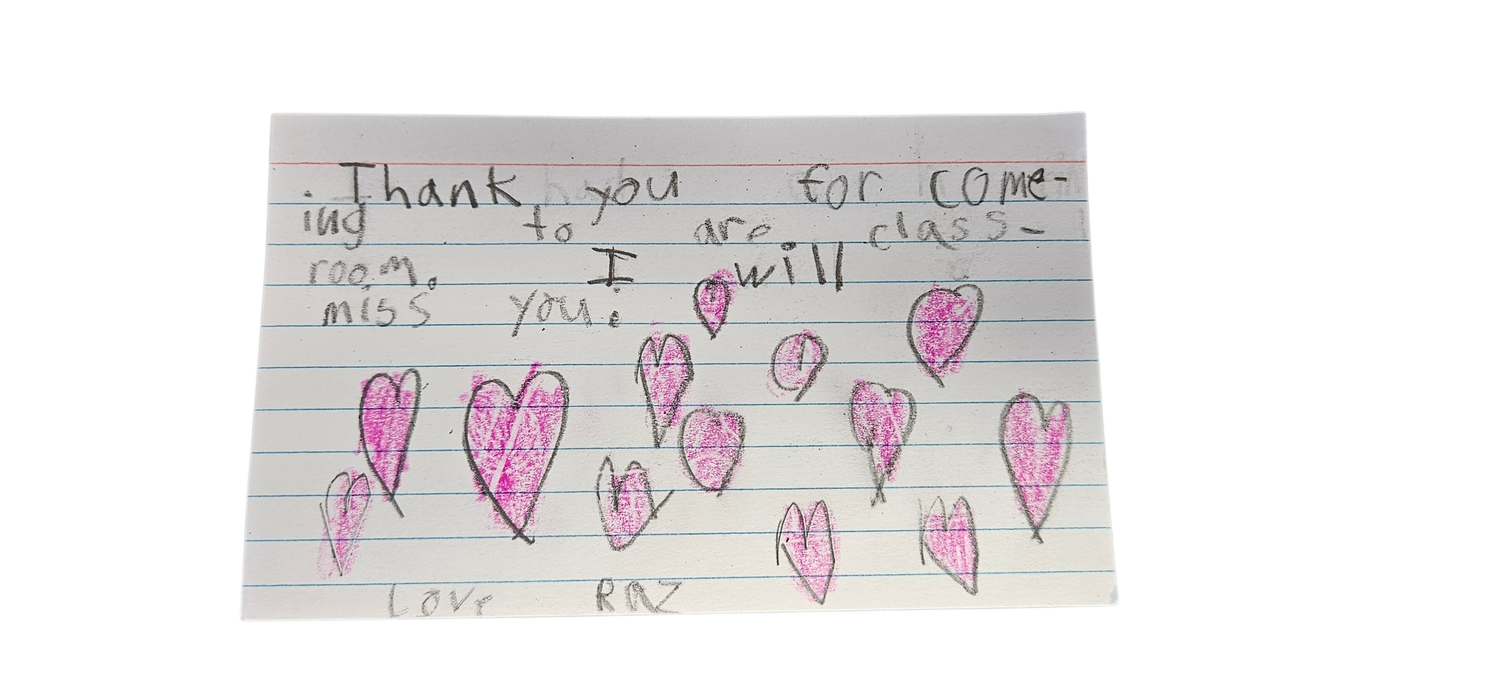 Thank you for come-
ing to are class-
room. I will
miss you.
Love RAZ